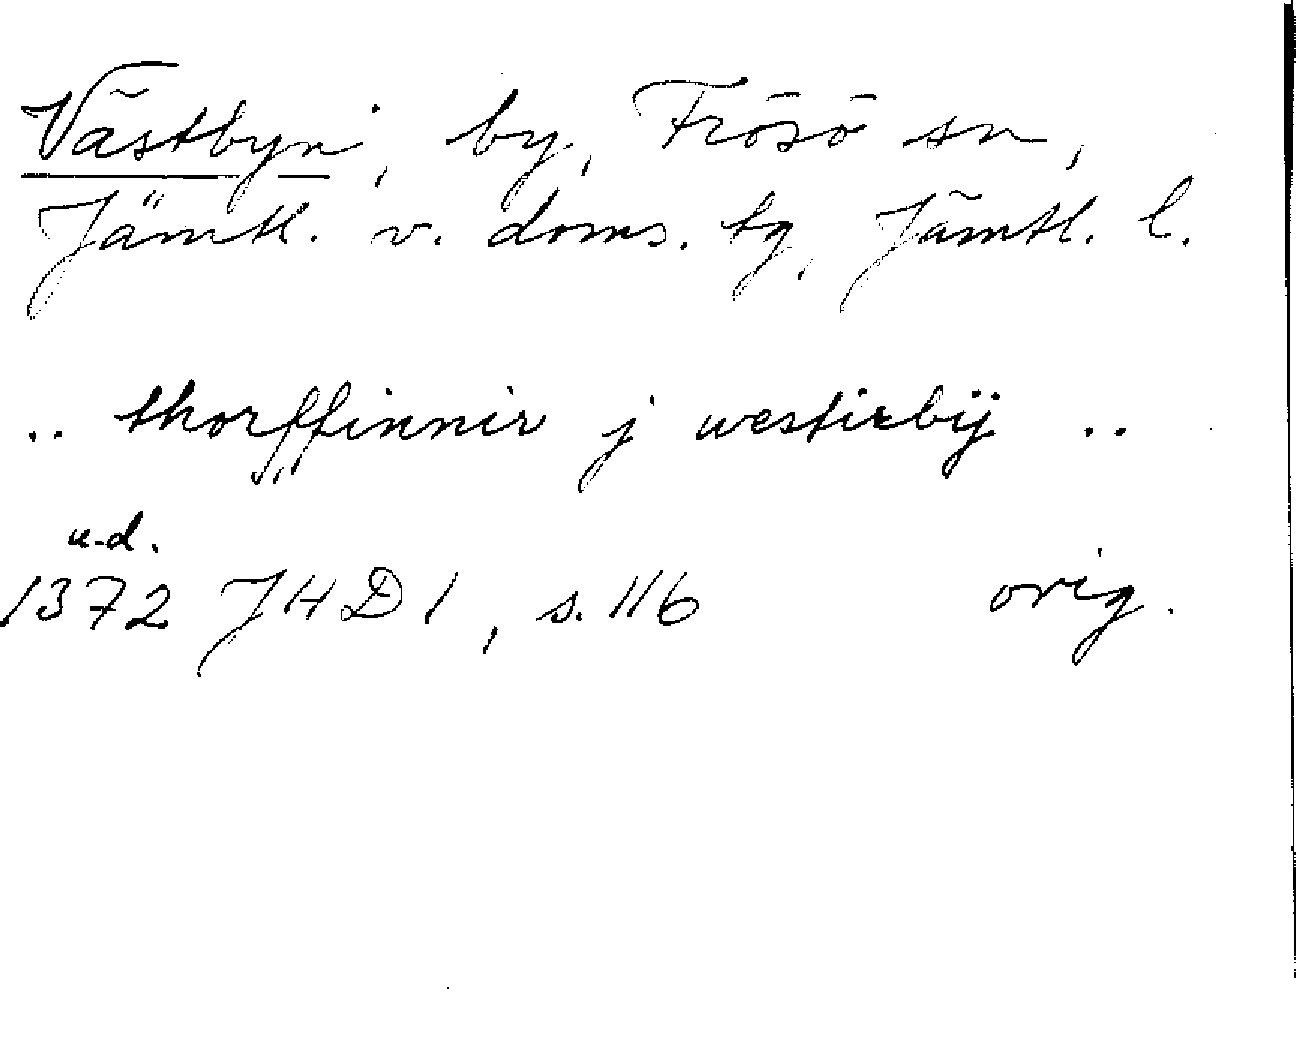 Västbyn, by, Frösö sn,
Jämtl. v. doms. tg, Jämtl. l.
.. thorffinnir j westirbÿ ..
u.d.
1372 JHD 1, s. 116 orig.